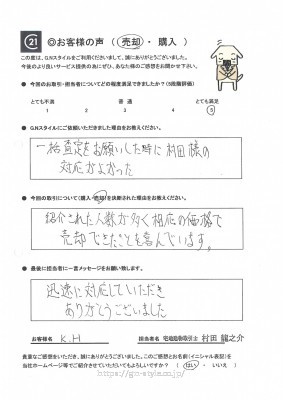 21 ◎お客様の声 (売却・購入)
この度は、G.Nスタイルをご利用くださいまして、誠にありがとうございました。
今後のより良いサービス提供の為にぜひ、あなた様のご感想をお聞かせ下さいませ。
● 今回のお取引・担当者についてどの程度満足できましたか?(5段階評価)
とても不満 普通 とても満足
1 2 3 4 5
● G.Nスタイルにご依頼いただきました理由をお教えください。
一括査定をお願いした時に村田様の
対応がよかった
● 今回の取引について(購入・売却)を決断された理由をお教えください。
紹介された人数が多く相応の価格で
売却できたことを喜んでいます。
● 最後に担当者に一言メッセージをお願い致します。
迅速に対応していただき
ありがとうございました
お客様名 K.H 担当者名 宅地建物取引士 村田 龍之介
貴重なご感想をいただき、誠にありがとうございました。このご感想とお名前(イニシャル表記)を
当社ホームページ等でご紹介させていただいてもよろしいですか? (はい・いいえ)
https://gn-style.co.jp/